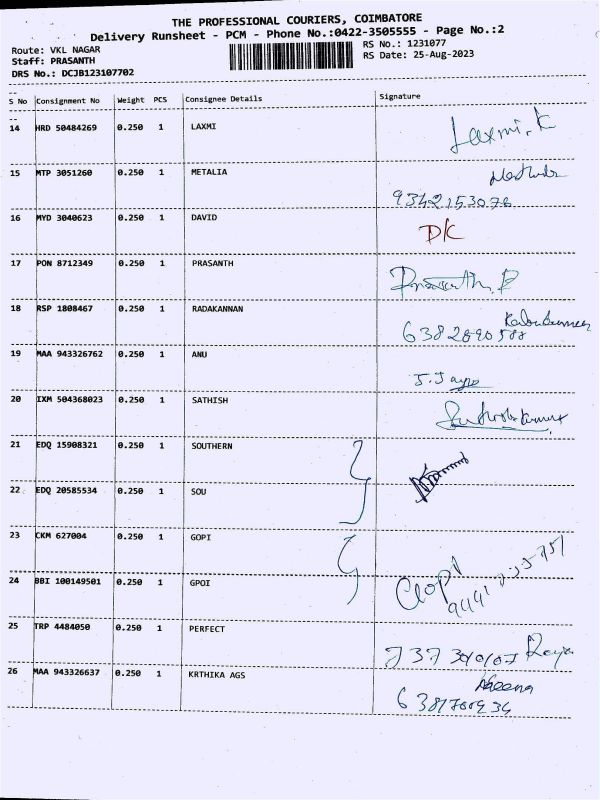 THE PROFESSIONAL COURIERS, COIMBATORE
Delivery Runsheet - PCM - Phone No.:0422-3505555 - Page No.:2
Route: VKL NAGAR
RS No.: 1231077
Staff: PRASANTH
RS Date: 25-Aug-2023
DRS No.: DCJB123107702
S No Consignment No Weight PCS Consignee Details Signature
14 HRD 50484269 0.250 1 LAXMI Laxmi.K
15 MTP 3051260 0.250 1 METALIA
9342153078
16 MYD 3040623 0.250 1 DAVID DK
17 PON 8712349 0.250 1 PRASANTH Prasanth.P
18 RSP 1808467 0.250 1 RADAKANNAN
6382890588
19 MAA 943326762 0.250 1 ANU
20 IXM 504368023 0.250 1 SATHISH
21 EDQ 15908321 0.250 1 SOUTHERN
22 EDQ 20585534 0.250 1 SOU
23 CKM 627004 0.250 1 GOPI
24 BBI 100149501 0.250 1 GPOI Gopi
25 TRP 4484050 0.250 1 PERFECT
26 MAA 943326637 0.250 1 KRTHIKA AGS